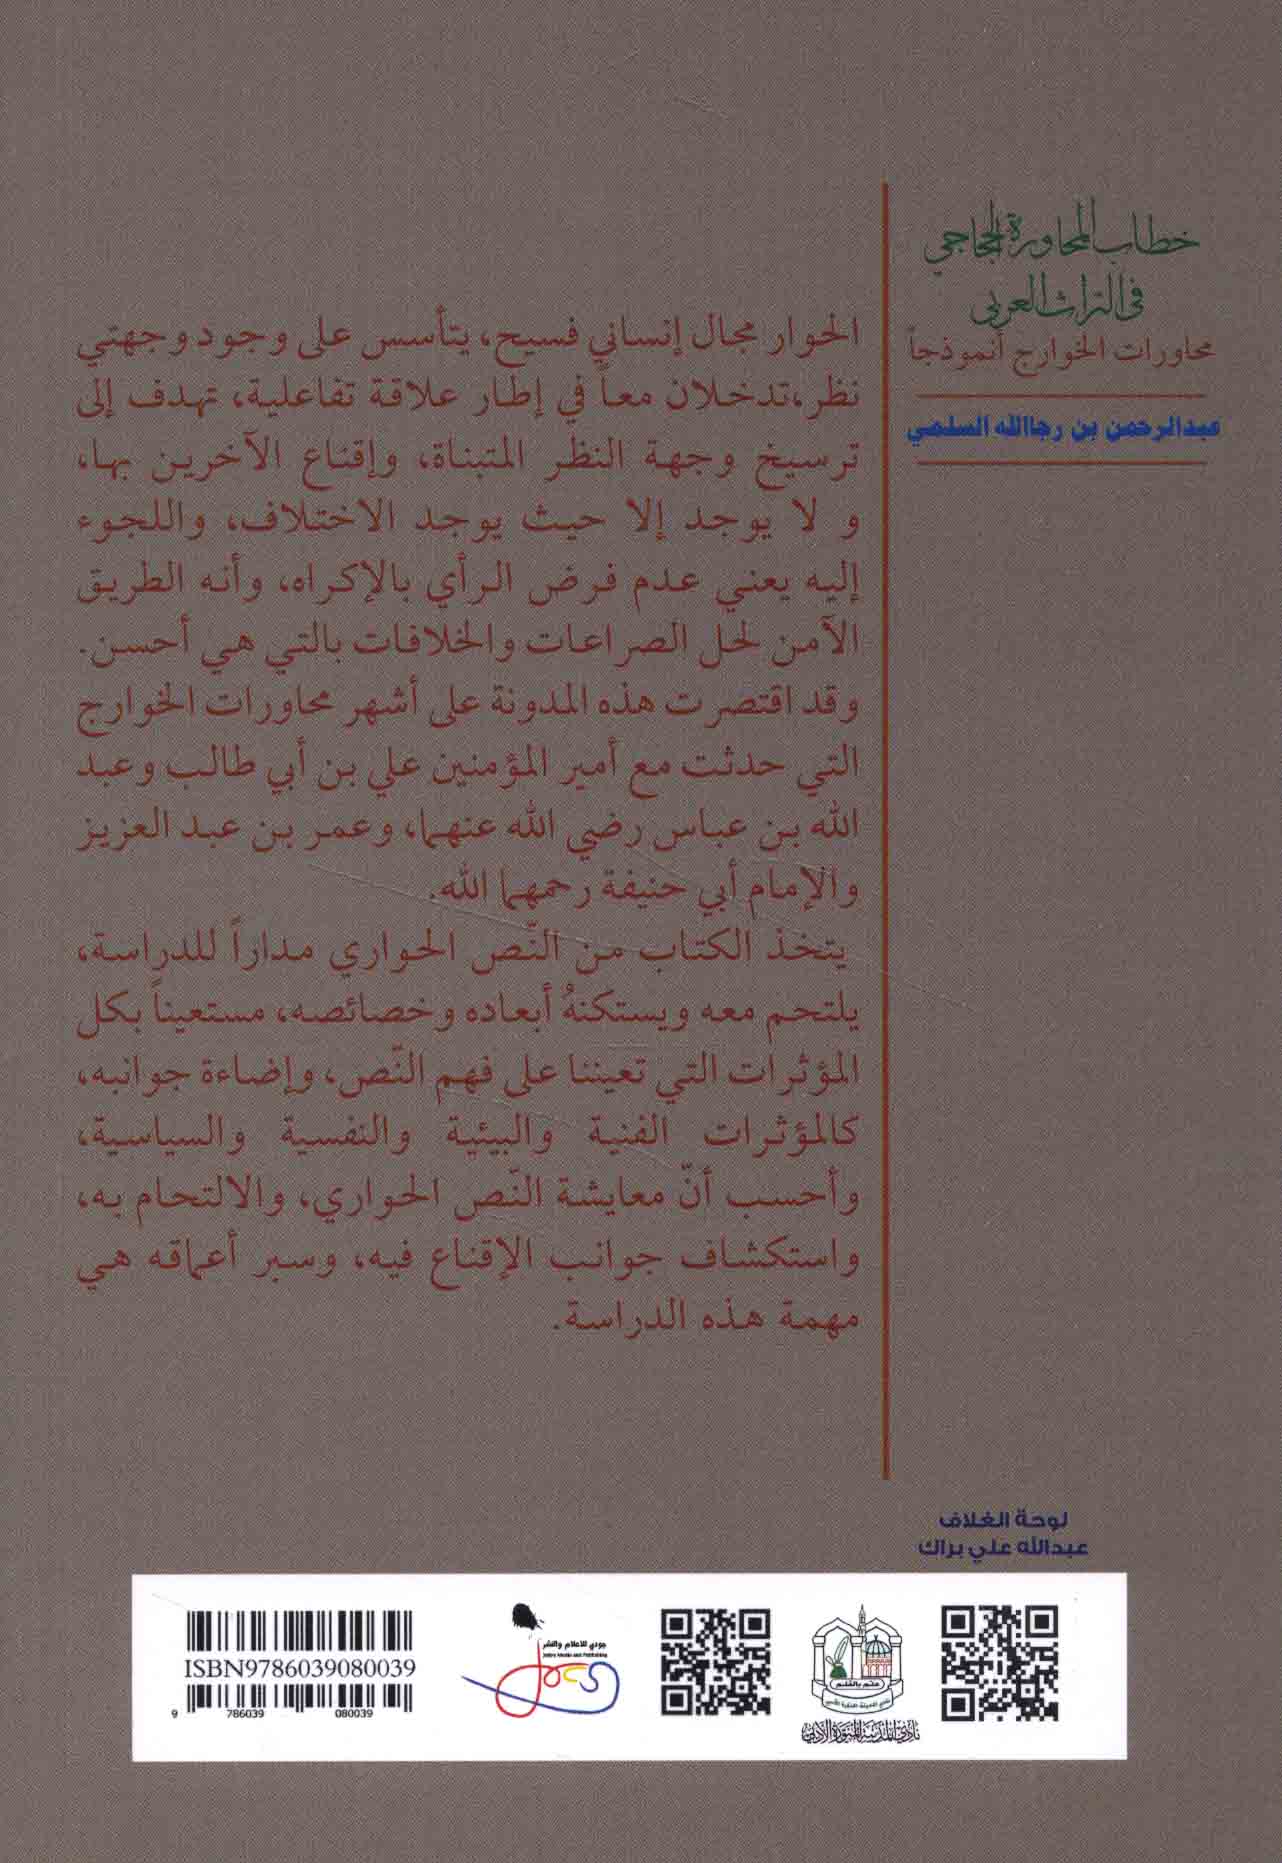 خطاب المحاورة الحجاجي
في التراث العربي
محاورات الخوارج أنموذجاً
عبدالرحمن بن رجاالله السلمي
الحوار مجال إنساني فسيح، يتأسس على وجود وجهتي
نظر،تدخلان معاً في إطار علاقة تفاعلية، تهدف إلى
ترسيخ وجهة النظر المتبناة، وإقناع الآخرين بها،
و لا يوجد إلا حيث يوجد الاختلاف، واللجوء
إليه يعني عدم فرض الرأي بالإكراه، وأنه الطريق
الآمن لحل الصراعات والخلافات بالتي هي أحسن.
وقد اقتصرت هذه المدونة على أشهر محاورات الخوارج
التي حدثت مع أمير المؤمنين علي بن أبي طالب وعبد
الله بن عباس رضي الله عنهما، وعمر بن عبد العزيز
والإمام أبي حنيفة رحمهما الله.
يتخذ الكتاب من النّص الحواري مداراً للدراسة،
يلتحم معه ويستكنهُ أبعاده وخصائصه، مستعيناً بكل
المؤثرات التي تعيننا على فهم النّص، وإضاءة جوانبه،
كالمؤثرات الفنية والبيئية والنفسية والسياسية،
وأحسب أنّ معايشة النّص الحواري، والالتحام به،
واستكشاف جوانب الإقناع فيه، وسبر أعماقه هي
مهمة هذه الدراسة.
لوحة الغلاف
عبدالله علي براك
علم بالقلم
نادي المدينة المنورة الأدبي
جودي للاعلام والنشر
Media and Publishing
ISBN9786039080039
9 786039 080039